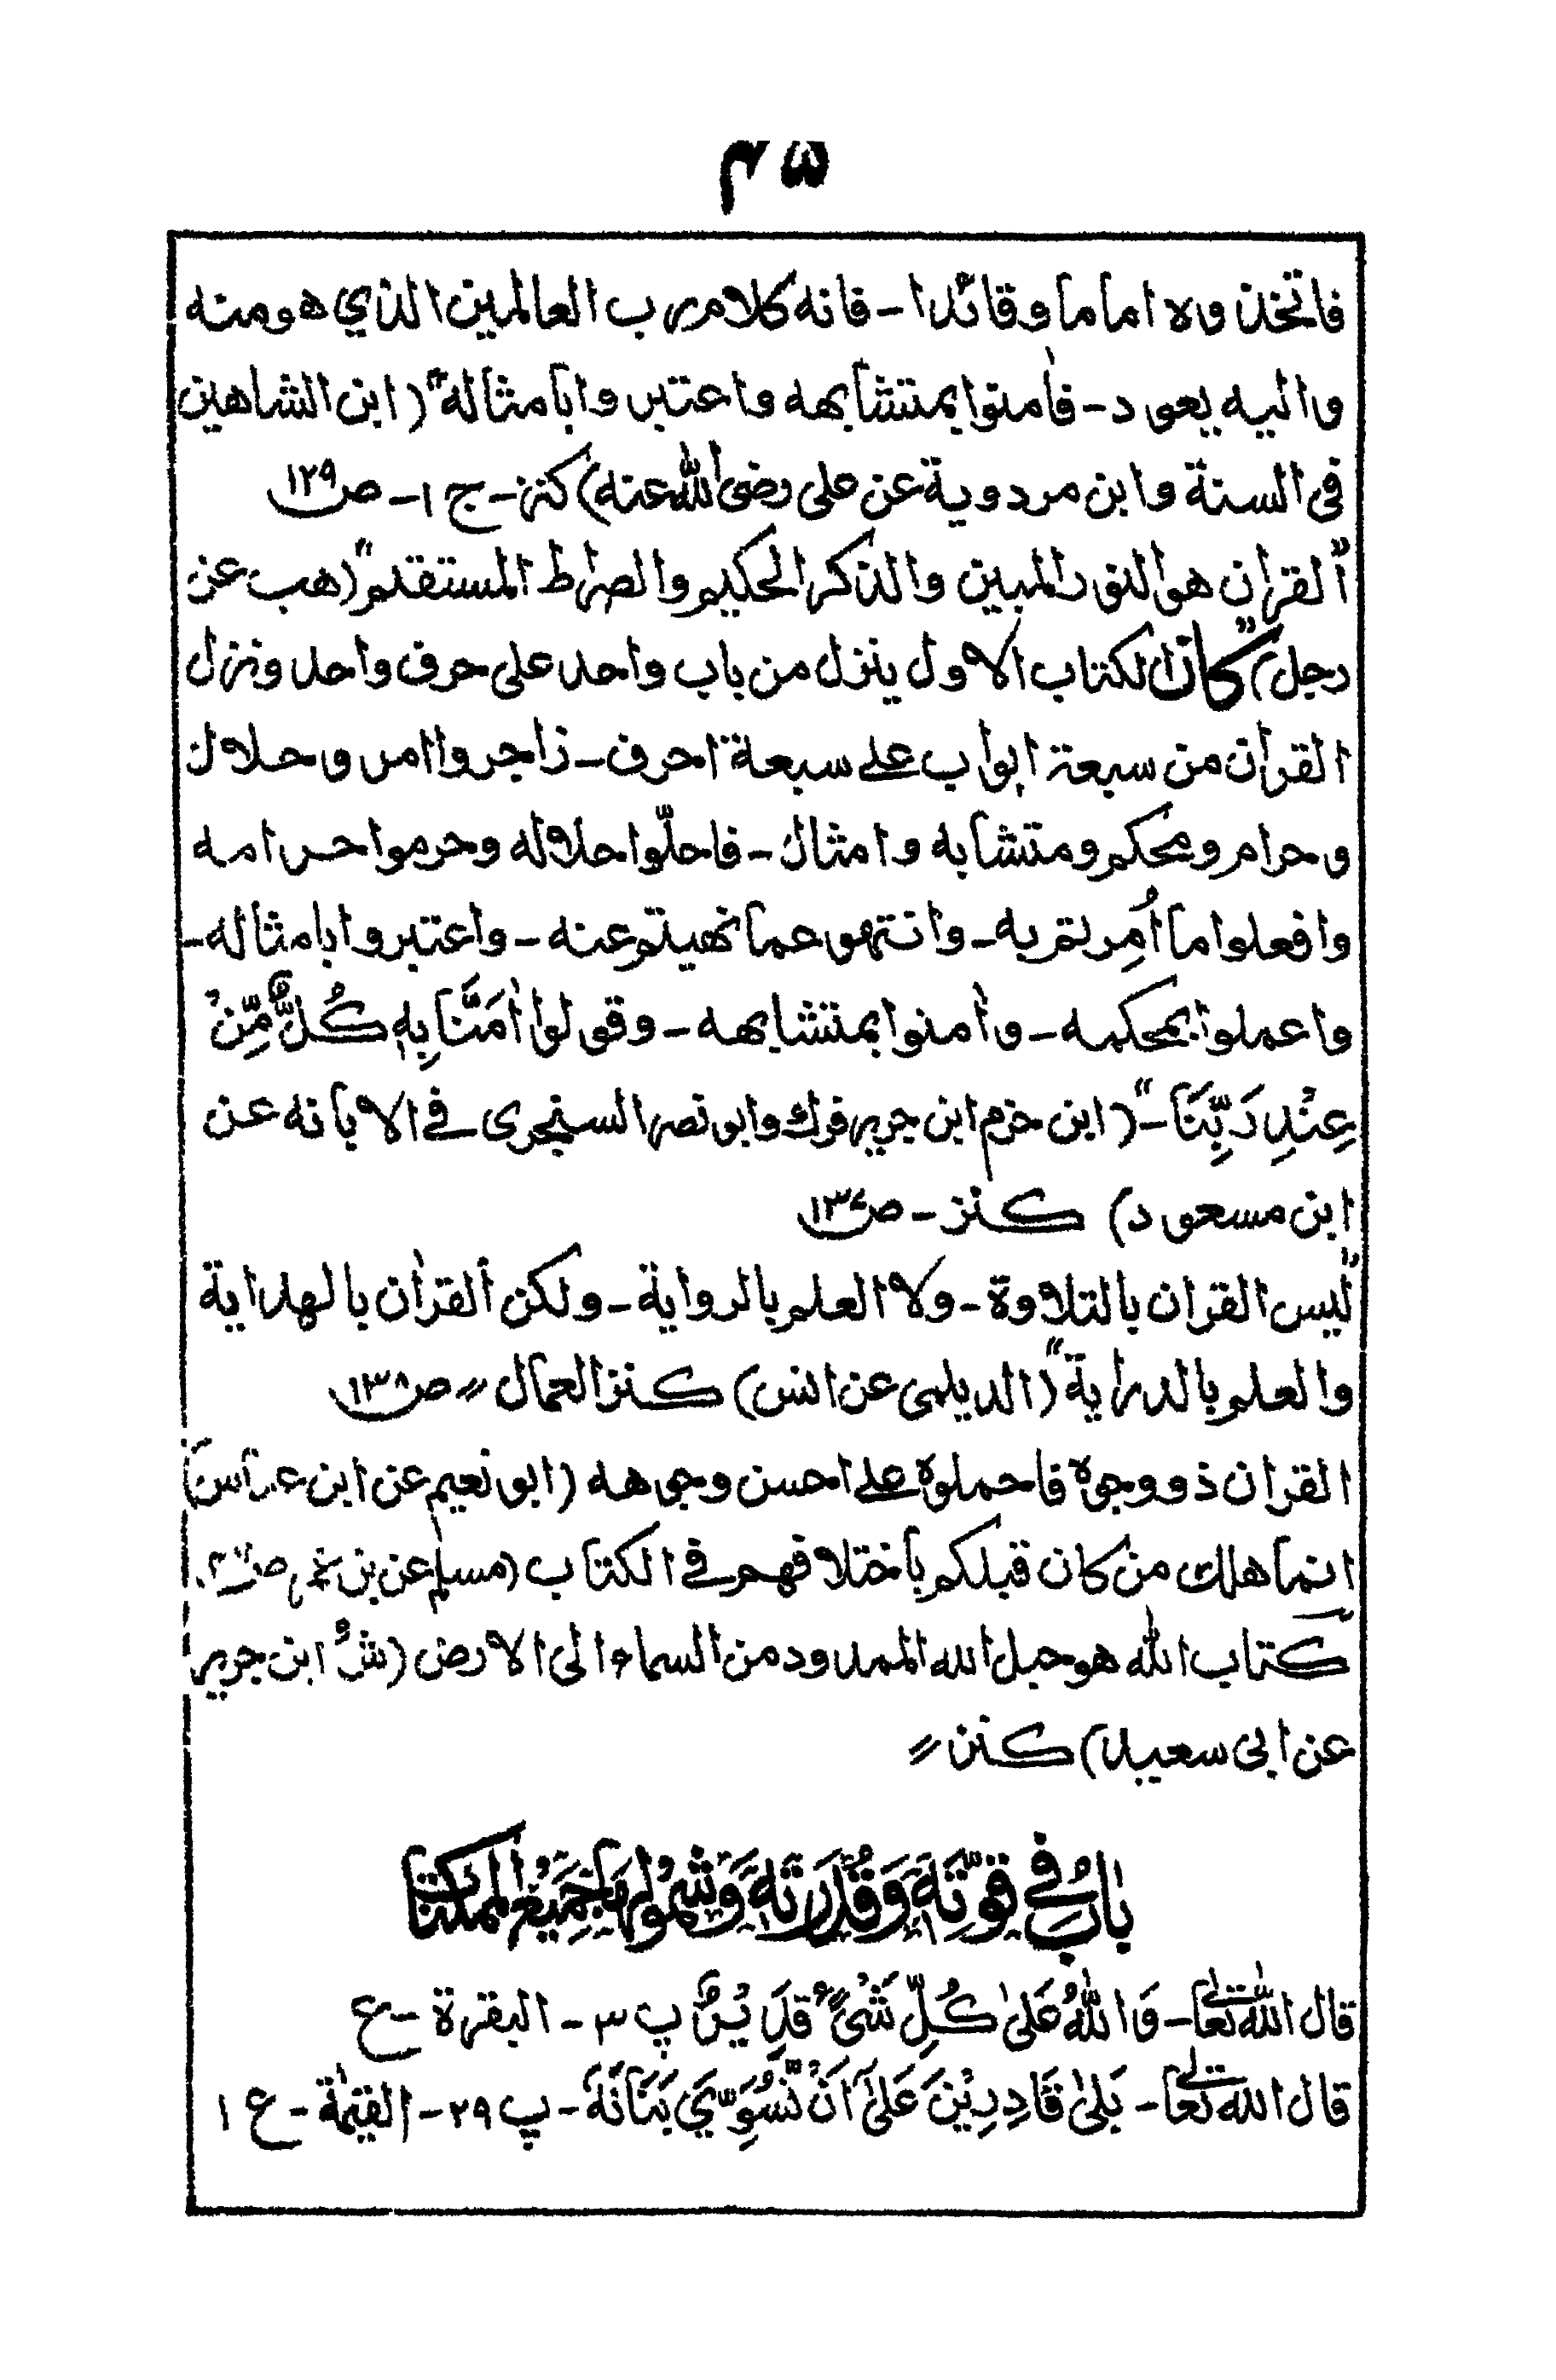 ۴۵
فاتخذوہ اماما وقائدا - فانه کلام رب العالمین الذي هو منه
والیه یعود - فاٰمنوا بمتشابهه واعتبروا بامثاله" (ابن الشاهین
فی السنة وابن مردویة عن علی رضی اللہ عنه) کنز - ج ۱ - ص۱۲۹
"القرآن هو النور المبین والذکر الحکیم والصراط المستقیم" (هب عن
رجل) "کان الکتاب الاول ینزل من باب واحد علی حرف واحد ونزل
القراٰن من سبعة ابواب علے سبعة احرف - زاجر واامر وحلال
وحرام ومحکم ومتشابه وامثال - فاحلّوا حلاله وحرموا حرامه
وافعلوا ما اُمِرتم به - وانتهوعما نهیتم عنه - واعتبروا بامثاله -
واعملوا بمحکمه - واٰمنوا بمتشابهه - وقولوا اٰمَنَّا بِهٖ کُلٌّ مِّنْ
عِنْدِ رَبِّنَا -" (ابن حزم ابن جریر فرك وابو نصر السنجری فے الابانه عن
ابن مسعود) کنز - ص۱۳۷
"لیس القران بالتلاوة - ولا العلم بالروایة - ولکن القراٰن بالهدایة
والعلم بالدرایة" (الدیلمی عن انس) کنز العمال " ص۱۳۸
القران ذو وجوہ فاحملوہ علے احسن وجوهه (ابو نعیم عن ابن عباس)
انما هلك من کان قبلکم باختلافهم فے الکتاب (مسلم عن بن
کتاب اللہ هو حبل الله الممدود من السماء الی الارض (ش ابن جریر
عن ابی سعید) کنز "
بَابُ فِي قُوَّتِهٖ وَقُدْرَتِهٖ وَشُمُولِهَا جَمِيْعَ الْمُمْكِنَات
قال اللہ تعالٰے - وَاللّٰهُ عَلٰی کُلِّ شَیْءٍ قَدِیْرٌ پ ۳ - البقرة - ع
قال الله تعالٰے - بَلٰی قَادِرِیْنَ عَلٰۤی اَنْ نُّسَوِّيَ بَنَانَهٗ - پ ۲۹ - القیٰمة - ع ۱